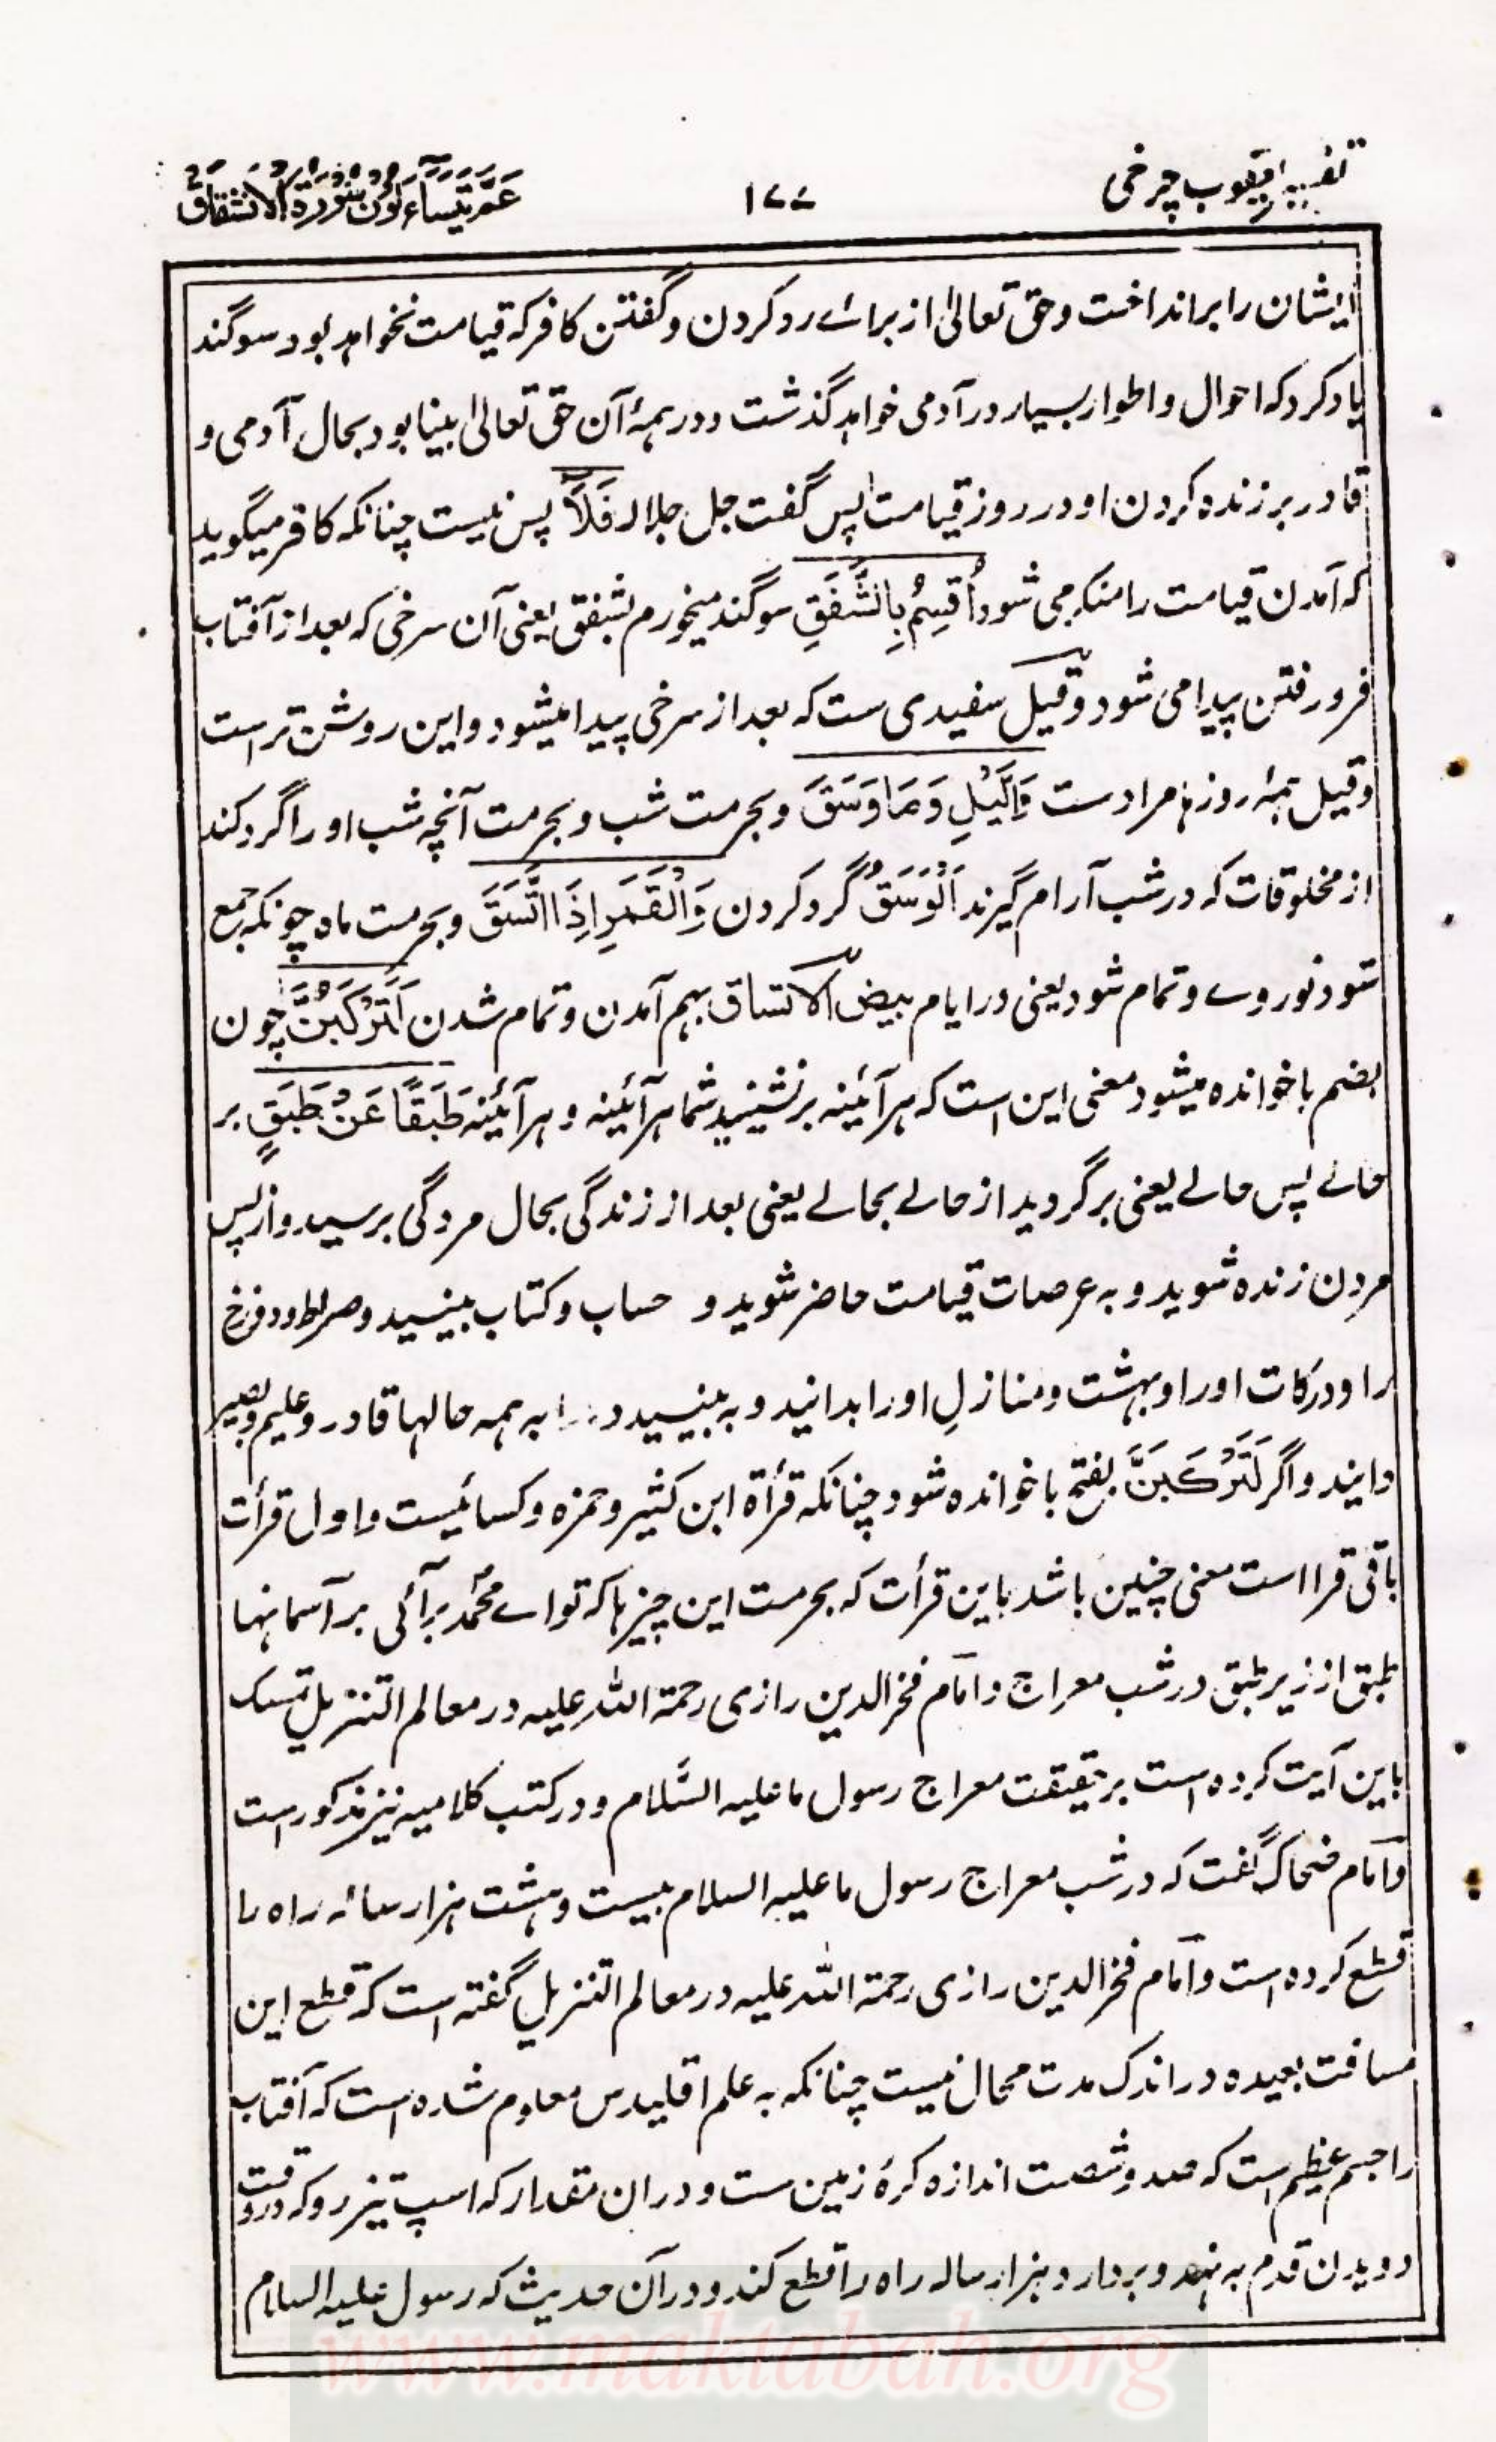 تفسیر یعقوب چرخی
۱۷۷
عَمَّ يَتَسَاءَلُونَ سُورَةُ الْاِنْشِقَاق
ایشان را برانداخت و حق تعالیٰ از برائے رد کردن و گفتن کافر که قیامت نخواهد بود سوگند
یاد کرد که احوال و اطوار بسیار در آدمی خواهد گذشت و در همۂ آن حق تعالیٰ بینا بود بحال آدمی و
قادر بر زنده کردن او در روز قیامت پس گفت جل جلاله فَلَآ پس نیست چنانکه کافر میگوید
که آمدن قیامت را منکر می شود اُقْسِمُ بِالشَّفَقِ سوگند میخورم بشفق یعنی آن سرخی که بعد از آفتاب
فرو رفتن پیدا می شود و قیل سفیدی ست که بعد از سرخی پیدا میشود و این روشن تر است
و قیل همۂ روز مراد ست وَالَّيْلِ وَمَا وَسَقَ و بحرمت شب و بحرمت آنچه شب او را گرد کند
از مخلوقات که در شب آرام گیرند اَلْوَسَقُ گرد کردن وَالْقَمَرِ اِذَا اتَّسَقَ و بحرمت ماه چونکه جمع
شود نور وے و تمام شود یعنی در ایام بیض الاتساق بهم آمدن و تمام شدن لَتَرْكَبُنَّ چون
بضم با خوانده میشود معنی این است که هر آئینه برنشینید شما هر آئینه و هر آئینه طَبَقًا عَنْ طَبَقٍ بر
حالے پس حالے یعنی برگردید از حالے بحالے یعنی بعد از زندگی بحال مردگی برسید و از پس
مردن زنده شوید و به عرصات قیامت حاضر شوید و حساب و کتاب بینید و صراط و دوزخ
را و درکات او را و بهشت و منازلِ او را بدانید و به بینید و را به همه حالها قادر و علیم و بصیر
دانید و اگر لَتَرْكَبَنَّ بفتح با خوانده شود چنانکه قرأة ابن کثیر و حمزه و کسائیست و اول قرأت
باقی قرا است معنی چنین باشد باین قرأت که بحرمت این چیزها که تو اے محمّد برآئی بر آسمانها
طبق از زیر طبق در شب معراج و امام فخرالدین رازی رحمة الله علیه در معالم التنزیل تمسک
باین آیت کرده است بر حقیقت معراج رسول ما علیه السَّلام و در کتب کلامیه نیز مذکور است
و امام ضحاک گفت که در شب معراج رسول ما علیه السلام بیست و هشت هزار ساله راه را
قطع کرده است و امام فخرالدین رازی رحمة الله علیه در معالم التنزیل گفته است که قطع این
مسافت بعیده در اندک مدت محال نیست چنانکه به علم اقلیدس معلوم شده است که آفتاب
را جسم عظیم است که صد و شصت اندازه کرۂ زمین ست و در ان مقدار که اسپ تیز رو که در وقت
دویدن قدم به نهد و بردارد هزار ساله راه را قطع کند و در آن حدیث که رسول علیه السلام
www.maktabah.org